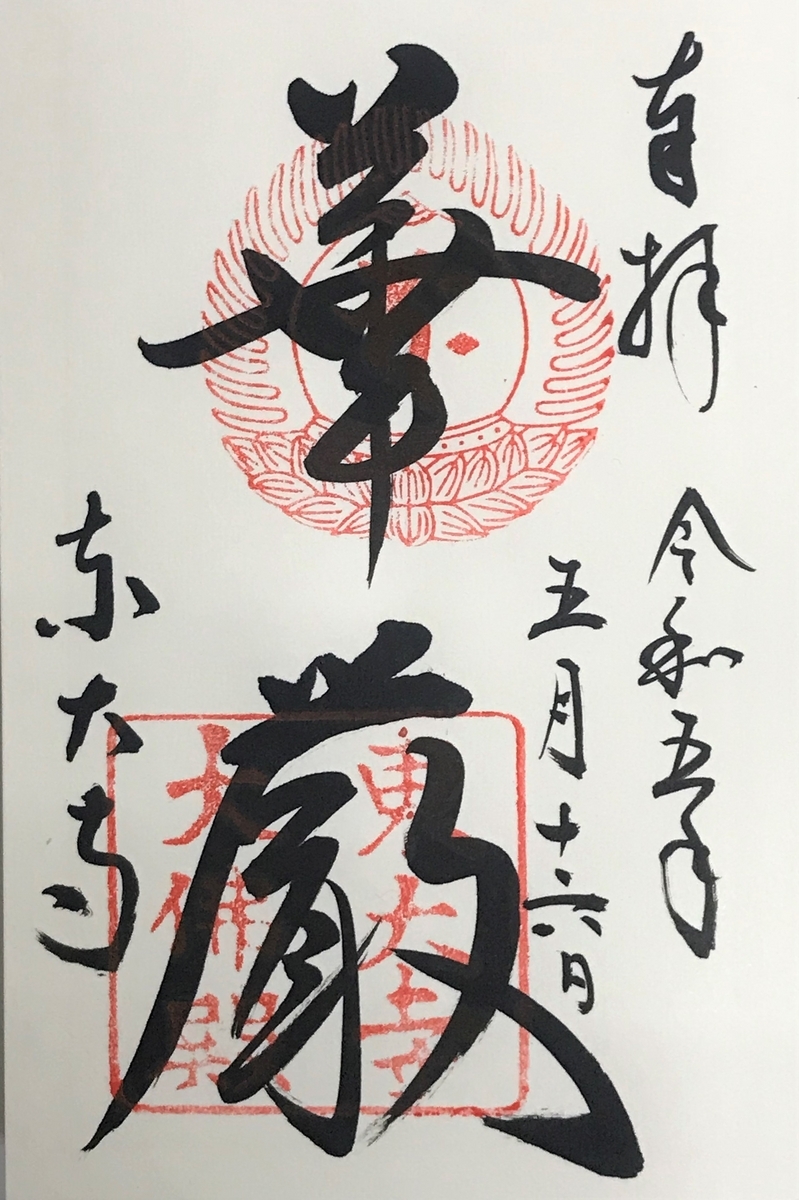 奉拝
令和五年
五月十六日
華厳
東大寺
東大寺
大佛殿